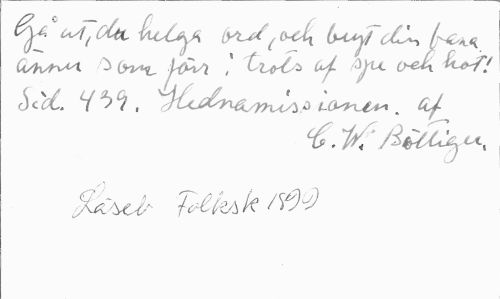 Gå ut, du helga ord, och bryt din bana
ännu som förr i trots af spe och hot!
Sid. 439. Hednamissionen. af
C. W. Böttiger.
Läseb Folksk 1899